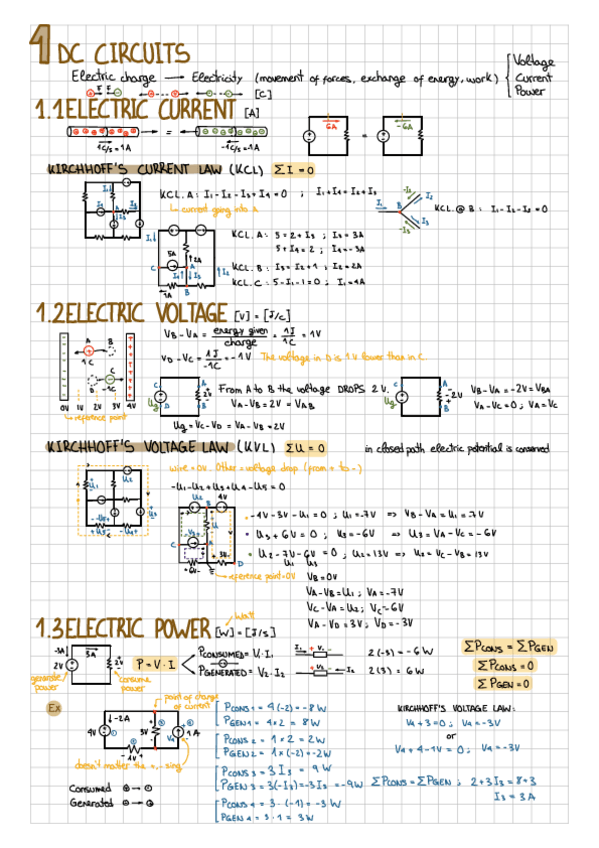 1 DC CIRCUITS
Electric charge → Electricity (movement of forces, exchange of energy, work) { Voltage
Current
Power
[C]
1.1 ELECTRIC CURRENT [A]
1C/s = 1A = -1C/s = 1A
6A = -6A
KIRCHHOFF'S CURRENT LAW (KCL) ΣI = 0
KCL. A: I1 - I2 - I3 + I4 = 0 ; I1 + I4 = I2 + I3
↳ current going into A
KCL @ B: I1 - I2 - I3 = 0
KCL. A: 5 = 2 + I3 ; I3 = 3A
5 + I4 = 2 ; I4 = -3A
KCL. B: I3 = I2 + 1 ; I2 = 2A
KCL. C: 5 - I1 - 1 = 0 ; I1 = 4A
1.2 ELECTRIC VOLTAGE [V] = [J/C]
VB - VA = energy given / charge = 1J / 1C = 1V
VD - VC = 1J / -1C = -1V The voltage in D is 1V lower than in C.
0V 1V 2V 3V 4V
↳ reference point
From A to B the voltage DROPS 2V.
VA - VB = 2V = VAB
VB - VA = -2V = VBA
VA - VC = 0 ; VA = VC
Ug = VC - VD = VA - VB = 2V
KIRCHHOFF'S VOLTAGE LAW (KVL) ΣU = 0 in closed path electric potential is conserved
wire = 0V. Other = voltage drop (from + to -)
-U1 - U2 + U3 + U4 - U5 = 0
• -4V - 3V - U1 = 0 ; U1 = -7V ⇒ VB - VA = U1 = -7V
• U3 + 6V = 0 ; U3 = -6V ⇒ U3 = VA - VC = -6V
• U2 - 7V - 6V = 0 ; U2 = 13V ⇒ U2 = VC - VB = 13V
U1 U3
reference point = 0V VB = 0V
VA - VB = U1 ; VA = -7V
VC - VA = U2 ; VC = 6V
VA - VD = 3V ; VD = -3V
1.3 ELECTRIC POWER [W] = [J/s]
Watt
-3A 3A
2V 2V
generate power consume power
P = V · I
PCONSUMED = V1 · I1 2(-3) = -6W
PGENERATED = V2 · I2 2(3) = 6W
ΣPCONS = ΣPGEN
ΣPCONS = 0
ΣPGEN = 0
Ex
point of change of current
4V -2A 3V 1A
-1V
doesn't matter the +, - sing
Consumed
Generated
PCONS 1 = 4(-2) = -8W
PGEN 1 = 4 × 2 = 8W
PCONS 2 = 1 × 2 = 2W
PGEN 2 = 1 × (-2) = -2W
PCONS 3 = 3I3 = 9W
PGEN 3 = 3(-I3) = -3I3 = -9W
PCONS 4 = 3 · (-1) = -3W
PGEN 4 = 3 · 1 = 3W
KIRCHHOFF'S VOLTAGE LAW:
V4 + 3 = 0 ; V4 = -3V
or
V4 + 4 - 1V = 0 ; V4 = -3V
ΣPCONS = ΣPGEN ; 2 + 3I3 = 8 + 3
I3 = 3A